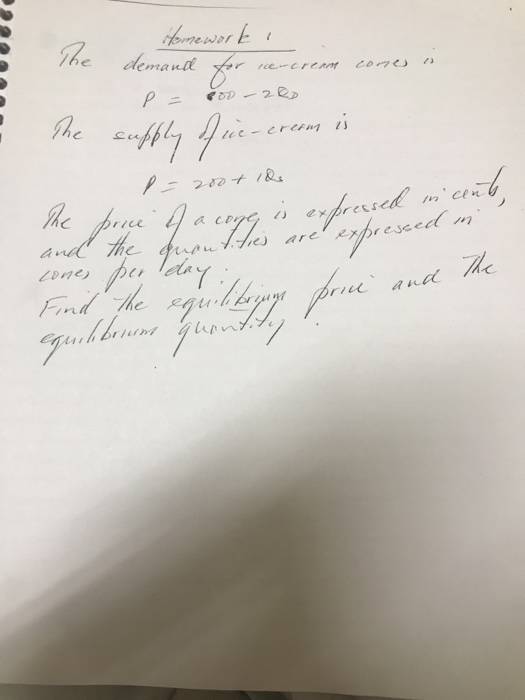 Homework 1
The demand for ice-cream cones is
P = 800 - 2QD
The supply of ice-cream is
P = 200 + 1Qs
The price of a cone, is expressed in cents,
and the quantities are expressed in
cones per day.
Find the equilibrium price and the
equilibrium quantity.